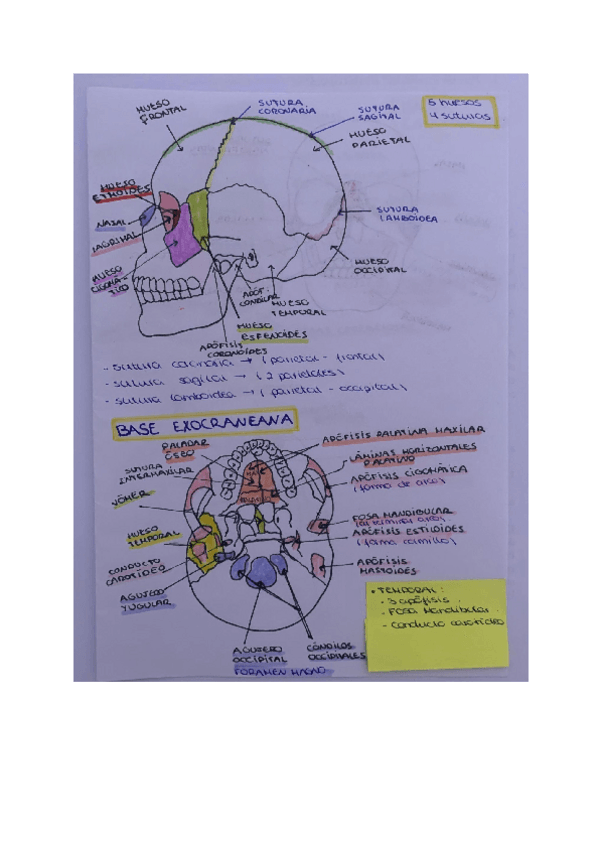 HUESO
FRONTAL
SUTURA
CORONARIA
SUTURA
SAGITAL
5 huesos
4 suturas
HUESO
PARIETAL
HUESO
ETMOIDES
NASAL
LAGRIMAL
SUTURA
LAMBOIDEA
HUESO
CIGOMÁ-
TICO
HUESO
OCCIPITAL
APÓF.
CONDILAR
HUESO
TEMPORAL
HUESO
ESFENOIDES
APÓFISIS
CORONOIDES
- Sutura coronaria → (parietal - frontal)
- sutura sagital → (2 parietales)
- sutura lamboidea → (parietal - occipital)
BASE EXOCRANEANA
PALADAR
ÓSEO
APÓFISIS PALATINA MAXILAR
SUTURA
INTERMAXILAR
LÁMINAS HORIZONTALES
PALATINO
APÓFISIS CIGOMÁTICA
(forma de arco)
VÓMER
FOSA MANDIBULAR
HUESO
TEMPORAL
APÓFISIS ESTILOIDES
(forma colmillo)
CONDUCTO
CAROTÍDEO
APÓFISIS
MASTOIDES
AGUJERO
YUGULAR
• TEMPORAL:
- 3 apófisis
- Fosa Mandibular
- conducto carotídeo
AGUJERO
OCCIPITAL
FORAMEN MAGNO
CÓNDILOS
OCCIPITALES